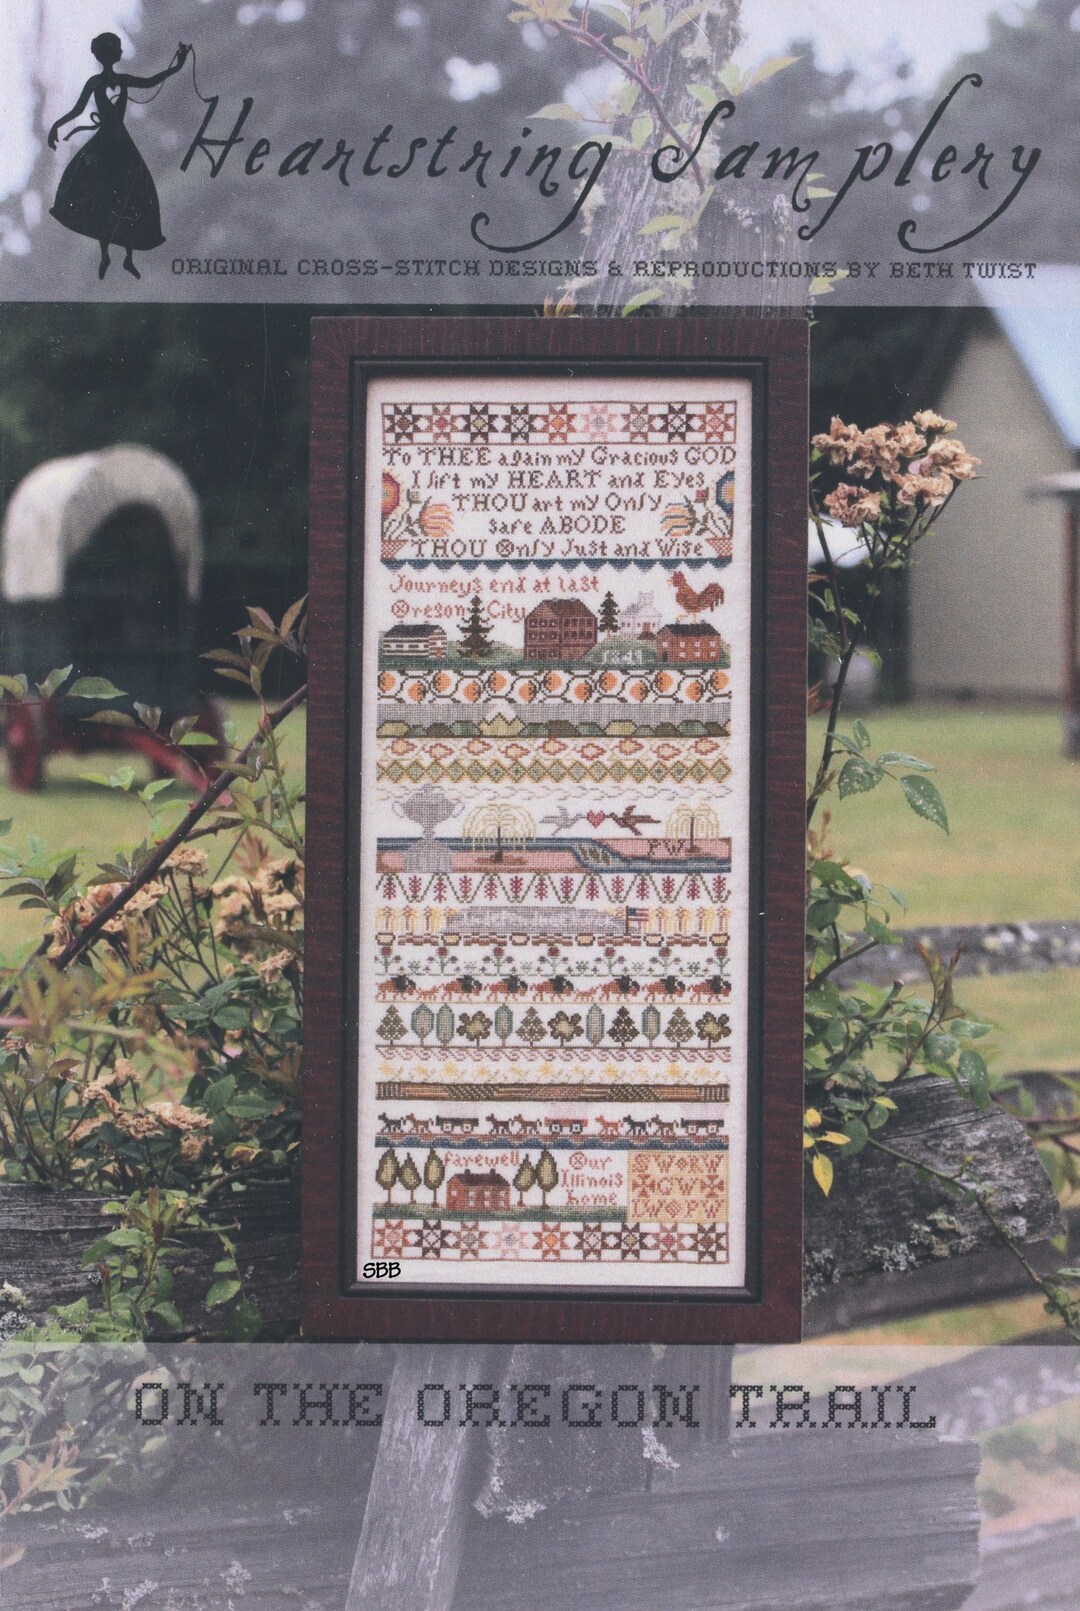 Heartstring Samplery
ORIGINAL CROSS-STITCH DESIGNS & REPRODUCTIONS BY BETH TWIST
To THEE again my Gracious GOD
I lift my HEART and Eyes
THOU art my Only
safe ABODE
THOU Only Just and Wise
Journeys end at last
Oregon City
PW
farewell
Our
Illinois
home
SW RW
GW
LW PW
SBB
ON THE OREGON TRAIL